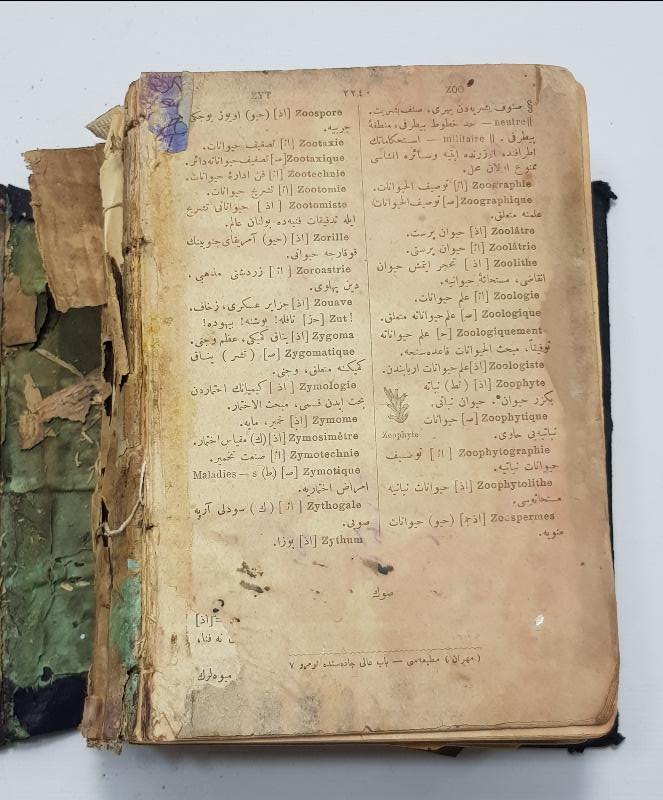 ZOO
٢٢٤٠
ZYT
§ صنوف بشریه‌دن بهری، صنف بشریت.
neutre — حد خطوط بیطرفی، منطقهٔ ||
بیطرفی. || militaire — استحکاماتك
اطرافنده اوزرنده ابنیه وسائره انشاسی
ممنوع اولان محل.
Zoographie [اث] توصیف الحیوانات.
Zoographique [ص] توصیف الحیوانات
علمنه متعلق.
Zoolâtre [اذ] حیوان پرست.
Zoolâtrie [اث] حیوان پرستی.
Zoolithe [اذ] تحجر ایتمش حیوان
انقاضی، مستحاثهٔ حیوانیه.
Zoologie [اث] علم حیوانات.
Zoologique [ص] علم حیواناته متعلق.
Zoologiquement [ح] علم حیواناته
توفیقاً، مبحث الحیوانات قاعده‌سنجه.
Zoologiste [اذ] علم حیوانات اربابندن.
Zoophyte [اذ] (تط) نباته
بکزر حیوان، حیوان نباتی.
Zoophytique [ص] حیوانات
نباتیه‌یی حاوی.
Zoophyte
Zoophytographie [اث] توصیف
حیوانات نباتیه.
Zoophytolithe [اذ] حیوانات نباتیه
مستحاثه‌سی.
Zoospermes [اذج] (حیو) حیوانات
منویه.
Zoospore [اذ] (حیو) اویوز بوجکی
جربیه.
Zootaxie [اث] تصنیف حیوانات.
Zootaxique [ص] تصنیف حیواناته دائر.
Zootechnie [اث] فن ادارهٔ حیوانات.
Zootomie [اث] تشریح حیوانات.
Zootomiste [اذ] حیواناتی تشریح
ایله تدقیقات فنیه‌ده بولنان عالم.
Zorille [اذ] (حیو) آمریقای جنوبینك
قوقارجه حیوانی.
Zoroastrie [اث] زردشتی مذهبی،
دین پهلوی.
Zouave [اذ] جزایر عسکری، زخاف.
Zut! [حز] نافله! بوشنه! بیهوده!
Zygoma [اذ] یناق کمیکی، عظم وجنی.
Zygomatique [ص] (تشر) یناق
کمیکنه متعلق، وجنی.
Zymologie [اذ] کیمیانك اختماردن
بحث ایدن قسمی، مبحث الاختمار.
Zymome [اذ] خمیر، مایه.
Zymosimètre [اذ] (ك) مقیاس اختمار.
Zymotechnie [اث] صنعت تخمیر.
Zymotique [ص] (ط) Maladies — s
امراض اختماریه.
Zythogale [اث] (ك) سودلی آرپه
صویی.
Zythum [اذ] بوزا.
صوك
[اذ] =
نه فناه
میوه‌لرك
(مهران) مطبعه‌سی — باب عالی جاده‌سنده نومرو ٧